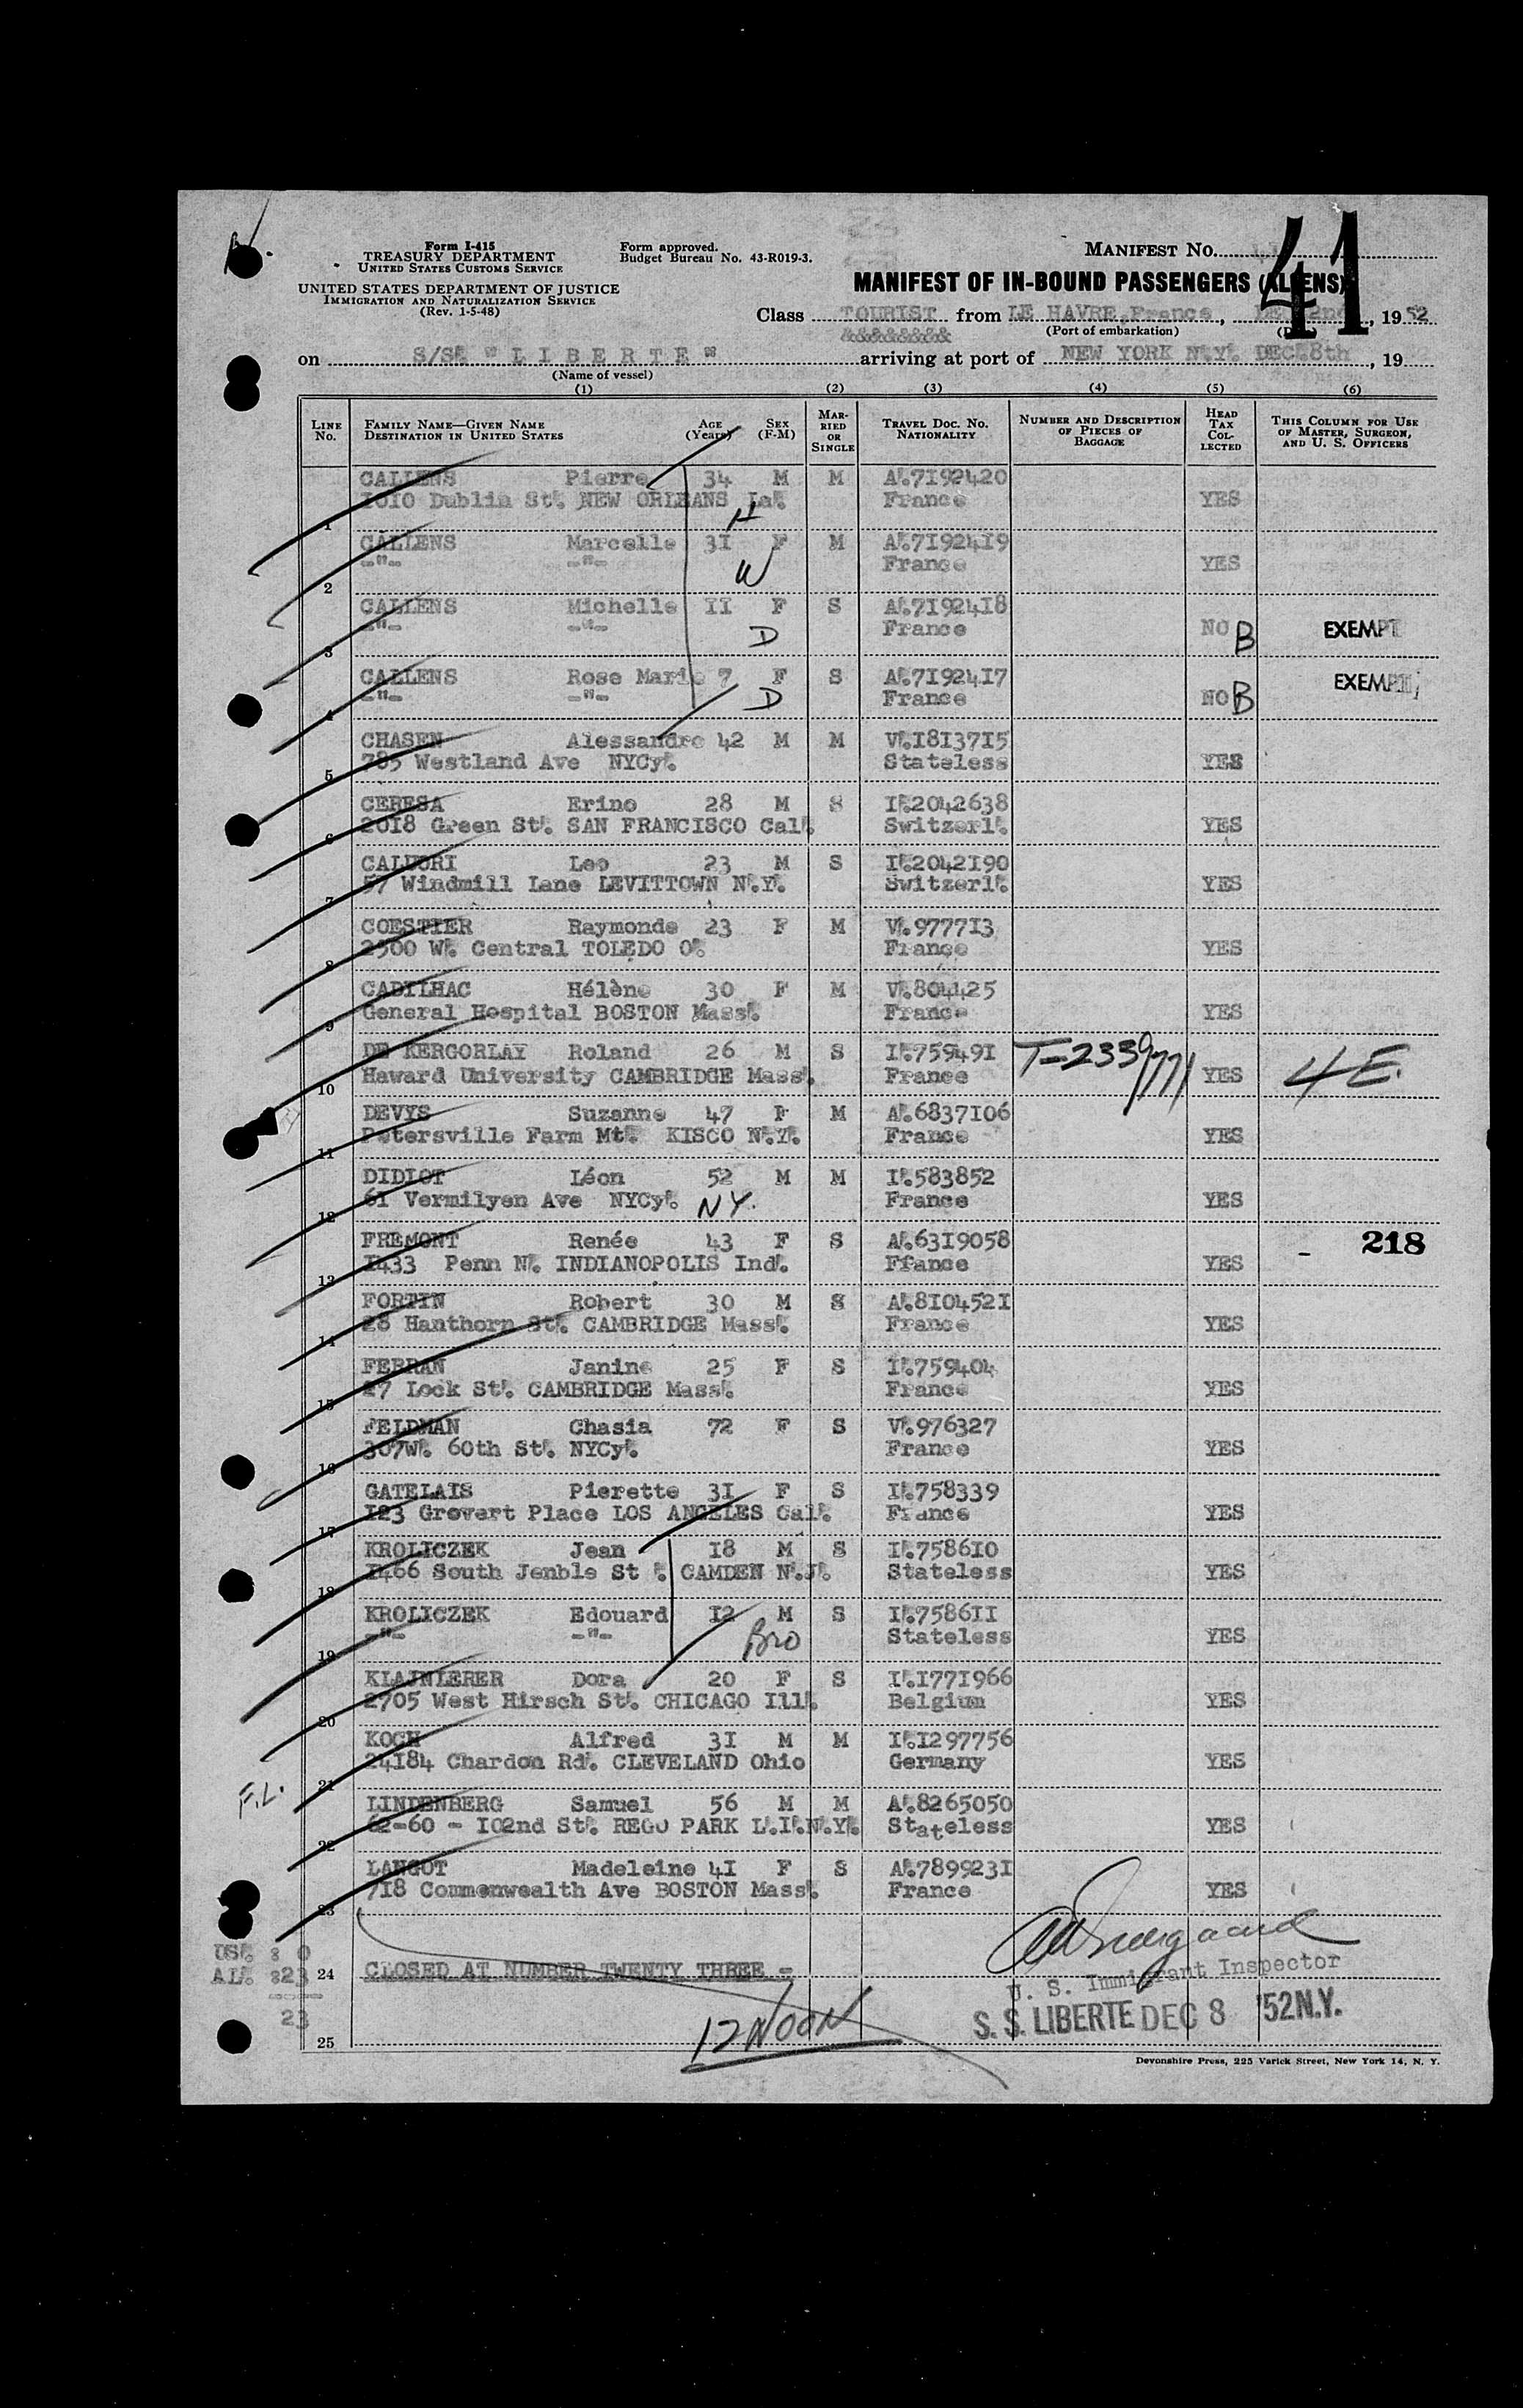 Form I-415
TREASURY DEPARTMENT
UNITED STATES CUSTOMS SERVICE
UNITED STATES DEPARTMENT OF JUSTICE
IMMIGRATION AND NATURALIZATION SERVICE
(Rev. 1-5-48)
Form approved.
Budget Bureau No. 43-R019-3.
MANIFEST No. 41
MANIFEST OF IN-BOUND PASSENGERS (ALIENS)
Class TOURIST from LE HAVRE, France, 2nd, 1952
(Port of embarkation)
on S/S. "LIBERTE" arriving at port of NEW YORK N.Y. DEC. 8th, 19
(Name of vessel)
(1) (2) (3) (4) (5) (6)
LINE No. FAMILY NAME—GIVEN NAME DESTINATION IN UNITED STATES AGE (Years) SEX (F-M) MARRIED OR SINGLE TRAVEL DOC. NO. NATIONALITY NUMBER AND DESCRIPTION OF PIECES OF BAGGAGE HEAD TAX COLLECTED THIS COLUMN FOR USE OF MASTER, SURGEON, AND U. S. OFFICERS
CALLENS Pierre 34 M M A.7192420
1 1010 Dublin St. NEW ORLEANS La. H France YES
CALLENS Marcelle 31 F M A.7192419
2 -"- -"- W France YES
CALLENS Michelle 11 F S A.7192418
3 -"- -"- D France NO B EXEMPT
CALLENS Rose Marie 7 F S A.7192417
4 -"- -"- D France NO B EXEMPT
CHASEN Alessandro 42 M M V.1813715
5 785 Westland Ave NYCy. Stateless YES
CERESA Erino 28 M S I.2042638
6 2018 Green St. SAN FRANCISCO Cal. Switzerl. YES
CALUORI Leo 23 M S I.2042190
7 57 Windmill Lane LEVITTOWN N.Y. Switzerl. YES
COESTIER Raymonde 23 F M V.977713
8 2500 W. Central TOLEDO O. France YES
CADILHAC Hélène 30 F M V.804425
9 General Hospital BOSTON Mass. France YES
DE KERGORLAY Roland 26 M S I.759491 T-2339771 4E.
10 Haward University CAMBRIDGE Mass. France YES
DEVYS Suzanne 47 F M A.6837106
11 Petersville Farm Mt. KISCO N.Y. France YES
DIDIOT Léon 52 M M I.583852
12 61 Vermilyen Ave NYCy. NY. France YES
FREMONT Renée 43 F S A.6319058 - 218
13 1433 Penn N. INDIANOPOLIS Ind. Ffance YES
FORTIN Robert 30 M S A.8104521
14 28 Hanthorn St. CAMBRIDGE Mass. France YES
FERRAN Janine 25 F S I.759404
15 27 Lock St. CAMBRIDGE Mass. France YES
FELDMAN Chasia 72 F S V.976327
16 307W. 60th St. NYCy. France YES
GATELAIS Pierette 31 F S I.758339
17 123 Grovert Place LOS ANGELES Cal. France YES
KROLICZEK Jean 18 M S I.758610
18 1466 South Jenble St. CAMDEN N.J. Stateless YES
KROLICZEK Edouard 12 M S I.758611
19 -"- -"- Bro Stateless YES
KLAJNLERER Dora 20 F S I.1771966
20 2705 West Hirsch St. CHICAGO Ill. Belgium YES
KOCH Alfred 31 M M I.1297756
21 24184 Chardon Rd. CLEVELAND Ohio Germany YES
F.L.
LINDENBERG Samuel 56 M M A.8265050
22 62-60 - 102nd St. REGO PARK L.I.N.Y. Stateless YES
LANGOT Madeleine 41 F S A.7899231
23 718 Commonwealth Ave BOSTON Mass. France YES
US. : 0
AL. :23
23
24 CLOSED AT NUMBER TWENTY THREE -
U. S. Immigrant Inspector
12 NOON
S. S. LIBERTE DEC 8 '52 N.Y.
25
Devonshire Press, 225 Varick Street, New York 14, N. Y.